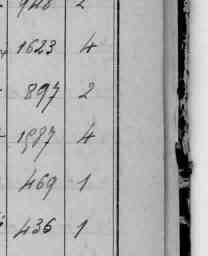 1623 4
897 2
1987 4
469 1
436 1